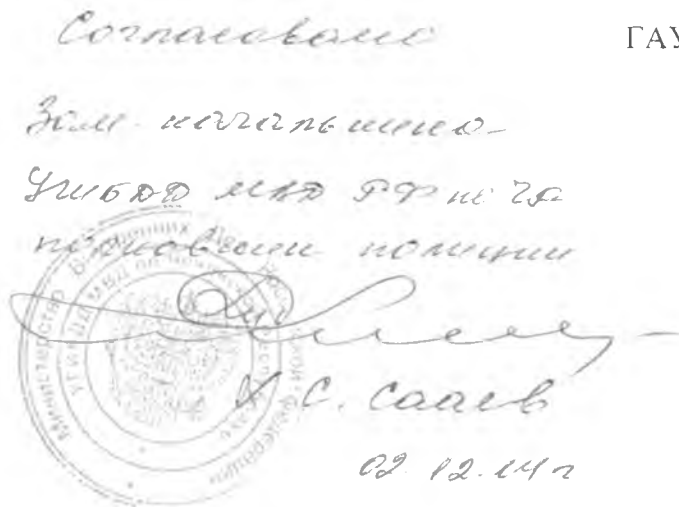 Согласовано
ГАУ
Зам. начальника
УГИБДД МВД РФ по ЧР
полковник полиции
Х С. Сааев
02.12.14г